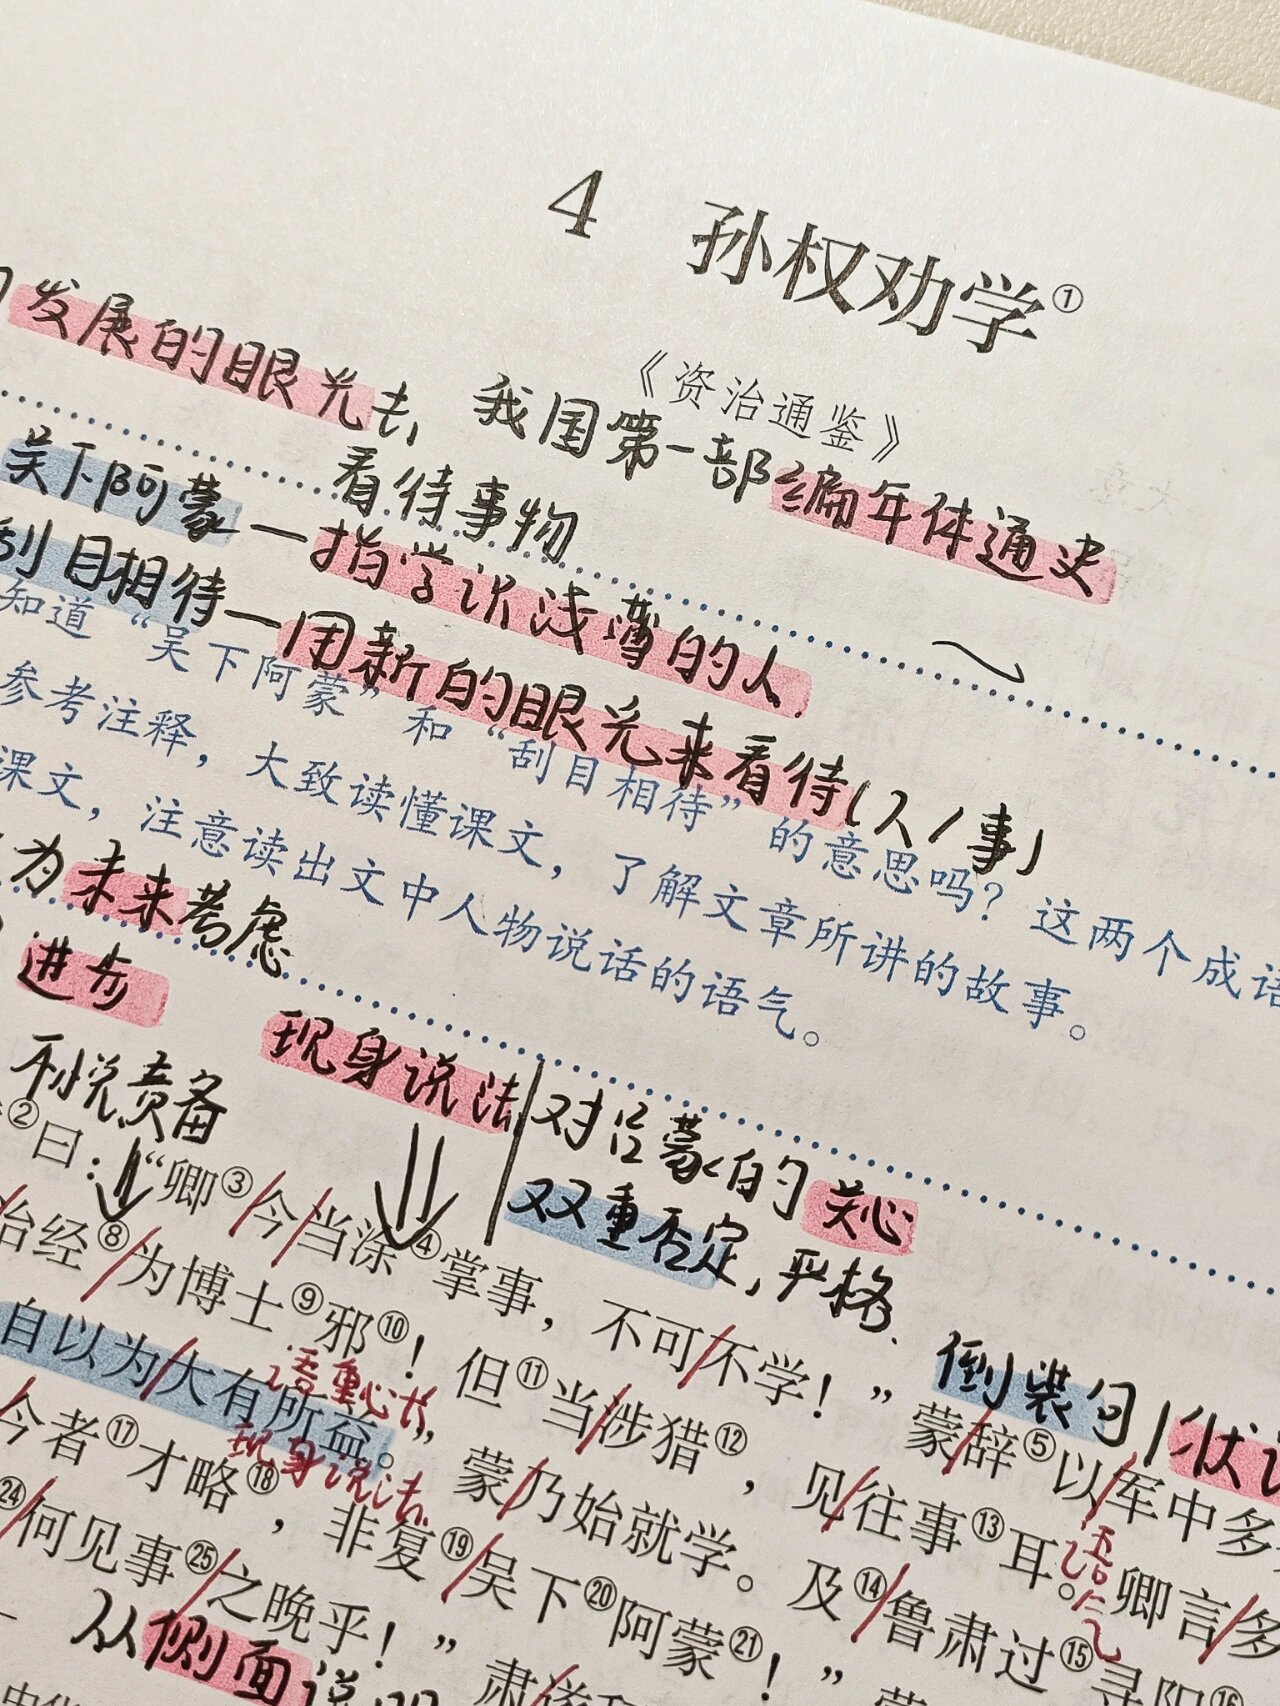 4 孙权劝学①
《资治通鉴》
发展的眼光去，
看待事物
我国第一部编年体通史
吴下阿蒙—指学识浅薄的人
刮目相待—用新的眼光来看待(人/事)
知道“吴下阿蒙”和“刮目相待”的意思吗？这两个成语
参考注释，大致读懂课文，了解文章所讲的故事。
课文，注意读出文中人物说话的语气。
为未来考虑
进步
不悦责备
现身说法
对吕蒙的关心
双重否定，严格
②曰：“卿③今当涂④掌事，不可不学！”蒙辞⑤以军中多
倒装句
治经⑧为博士⑨邪⑩！但⑪当涉猎⑫，见往事⑬耳。卿言多
语重心长
语气
自以为大有所益。”蒙乃始就学。及⑭鲁肃过⑮寻阳⑯
现身说法
今者⑰才略⑱，非复⑲吴下⑳阿蒙㉑！”蒙
㉔何见事㉕之晚乎！”肃遂
从侧面说明